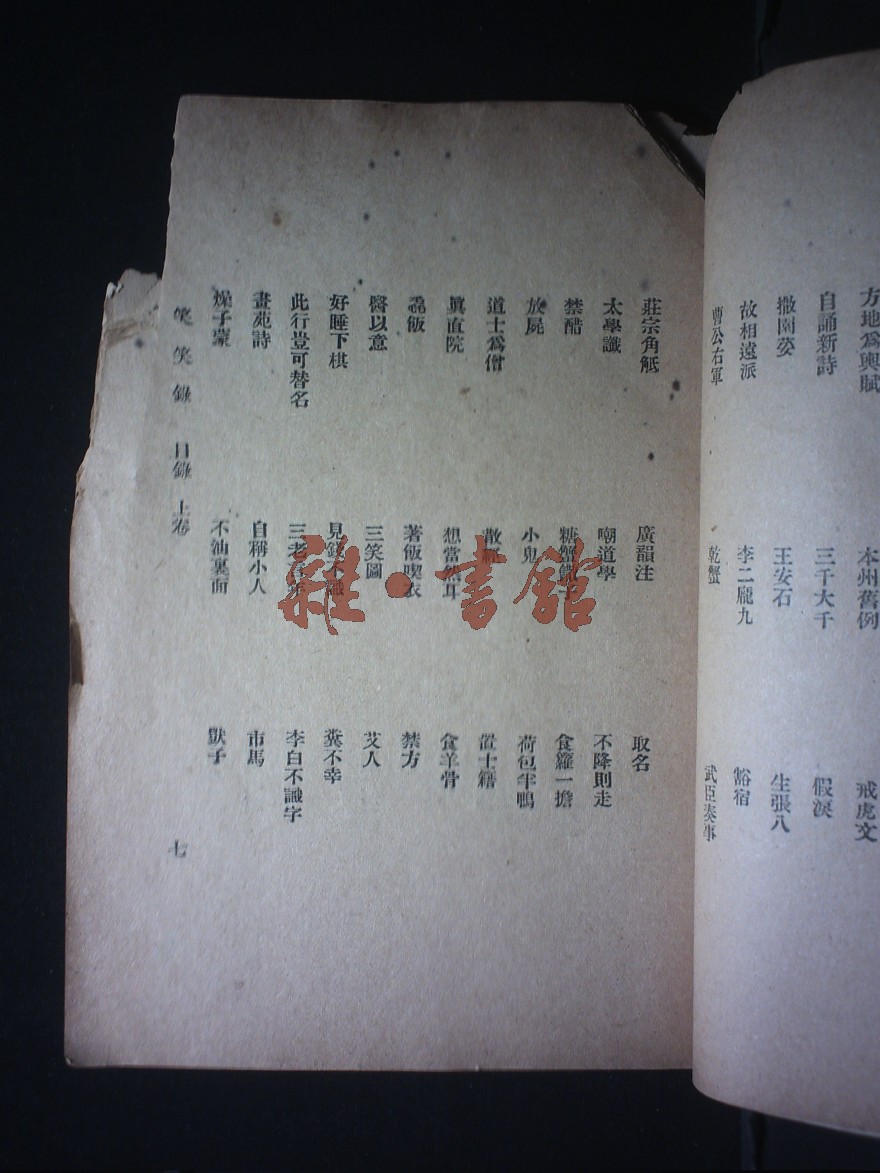 方地爲輿賦 本州舊例 戒虎文
自誦新詩 三千大千 假淚
撒園荽 王安石 生張八
故相遠派 李二龐九 豁宿
曹公右軍 乾蟹 武臣奏事
莊宗角觝 廣韻注 取名
太學讖 嘲道學 不降則走
禁酷 糖蟹 食籮一擔
放屍 小鬼 荷包牟鴨
道士爲僧 置士籍
眞直院 想當然耳 食羊骨
毳飯 著飯喫衣 禁方
醫以意 三笑圖 艾人
好睡下棋 見錢不識 糞不幸
此行豈可替名 三老 李白不識字
畫苑詩 自稱小人 市馬
燥子蒙 不油裏面 獃子
笑笑錄 目錄 上卷 七
雜·書館